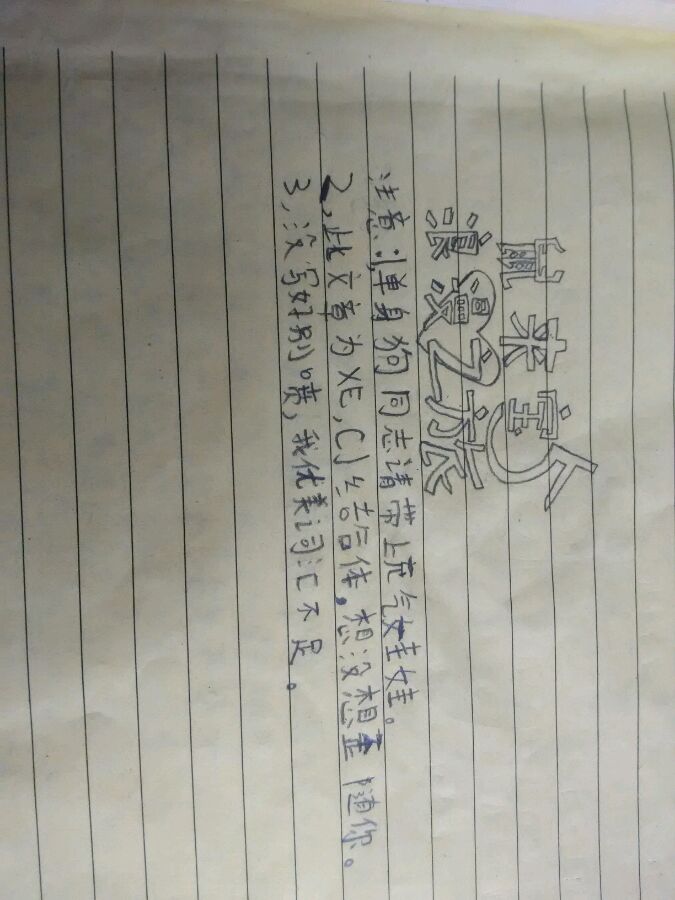 来宝
浪漫之旅
注意:1,单身狗同志请带上充气娃娃。
2,此文章为XE,CJ结合体,想没想歪随你。
3,没写好别喷,我优美词汇不足。